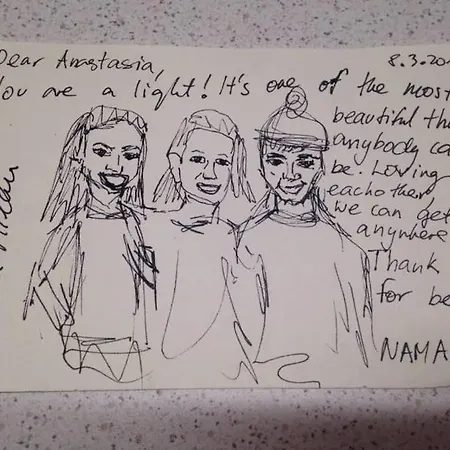 Dear Anastasia,
8.3.20
You are a light! It's one of the most
beautiful
anybody
be. Loving
eachother,
we can get
anywhere
Thank
for